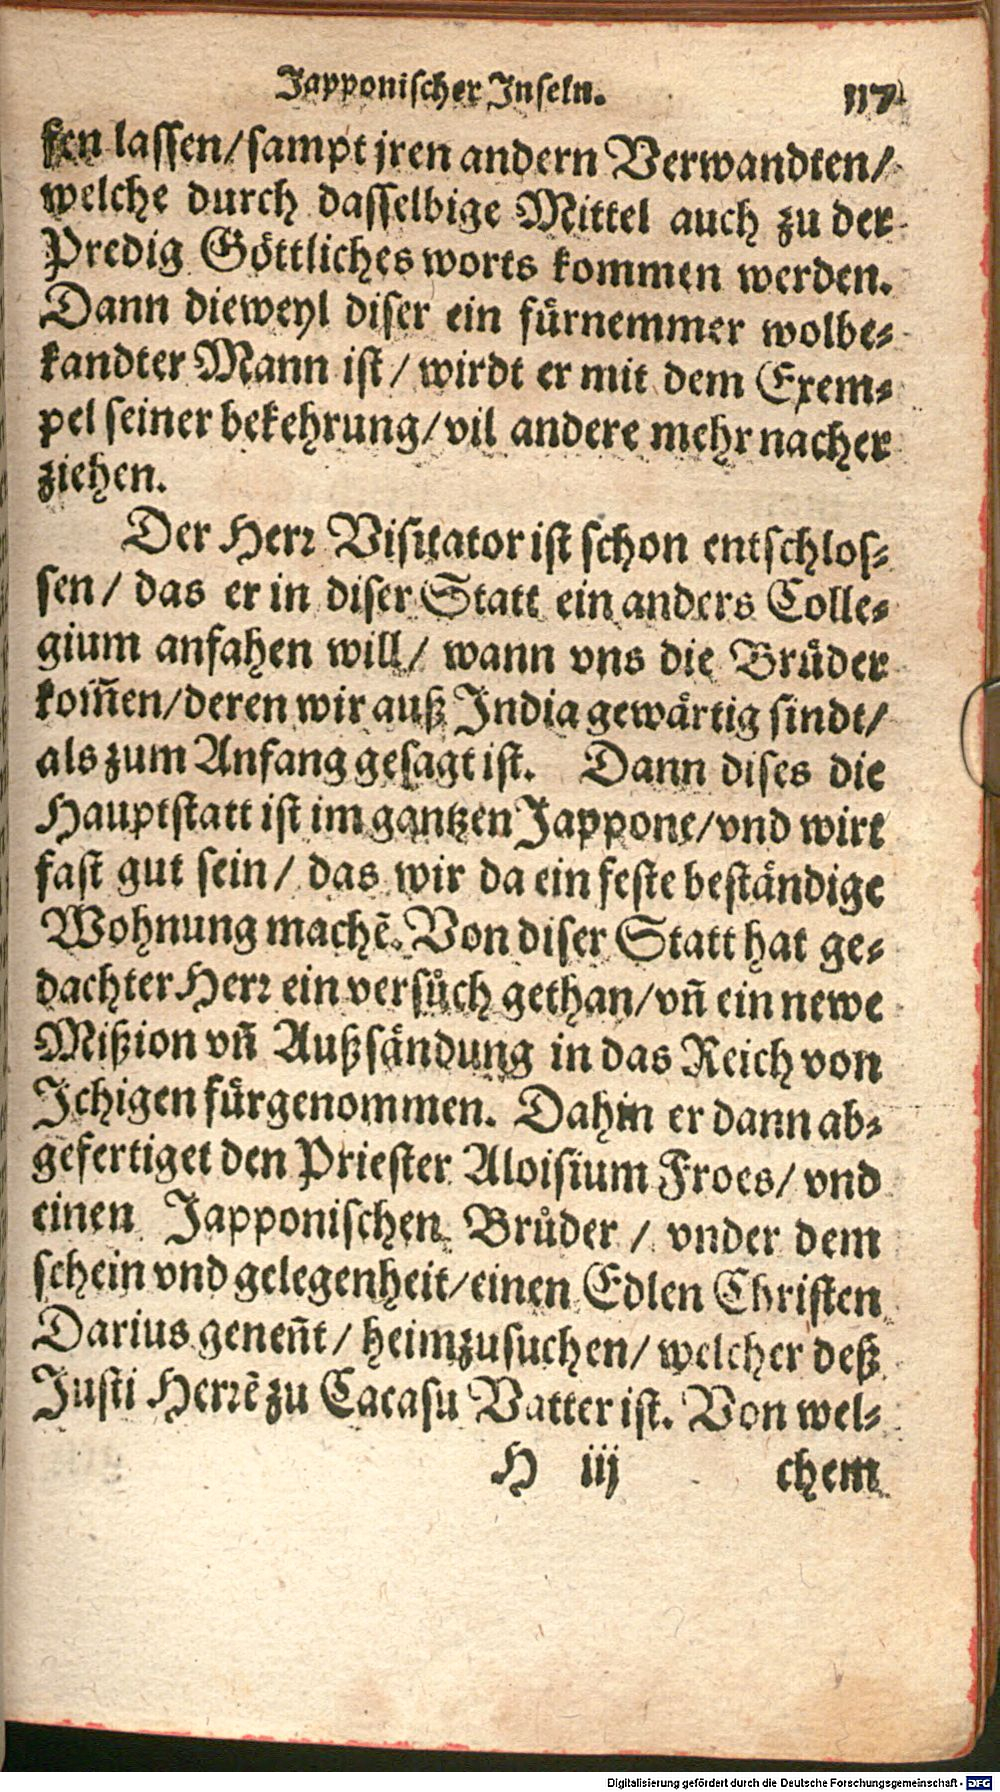 Japponischer Inseln. 117
fen lassen/ sampt jren andern Verwandten/
welche durch dasselbige Mittel auch zu der
Predig Göttliches worts kommen werden.
Dann dieweyl diser ein fürnemmer wolbe-
kandter Mann ist/ wirdt er mit dem Exem-
pel seiner bekehrung/ vil andere mehr nacher
ziehen.
Der Herr Visitator ist schon entschlos-
sen/ das er in diser Statt ein anders Colle-
gium anfahen will/ wann vns die Brůder
kom̃en/ deren wir auß India gewärtig sindt/
als zum Anfang gesagt ist. Dann dises die
Hauptstatt ist im gantzen Jappone/ vnd wirt
fast gut sein/ das wir da ein feste beständige
Wohnung machẽ. Von diser Statt hat ge-
dachter Herr ein versůch gethan/ vñ ein newe
Mißion vñ Außsändung in das Reich von
Ichigen fürgenommen. Dahin er dann ab-
gefertiget den Priester Aloisium Froes/ vnd
einen Japponischen Brůder/ vnder dem
schein vnd gelegenheit/ einen Edlen Christen
Darius geneñt/ heimzusuchen/ welcher deß
Justi Herrẽ zu Cacasu Vatter ist. Von wel-
H iij chem
Digitalisierung gefördert durch die Deutsche Forschungsgemeinschaft - DFG